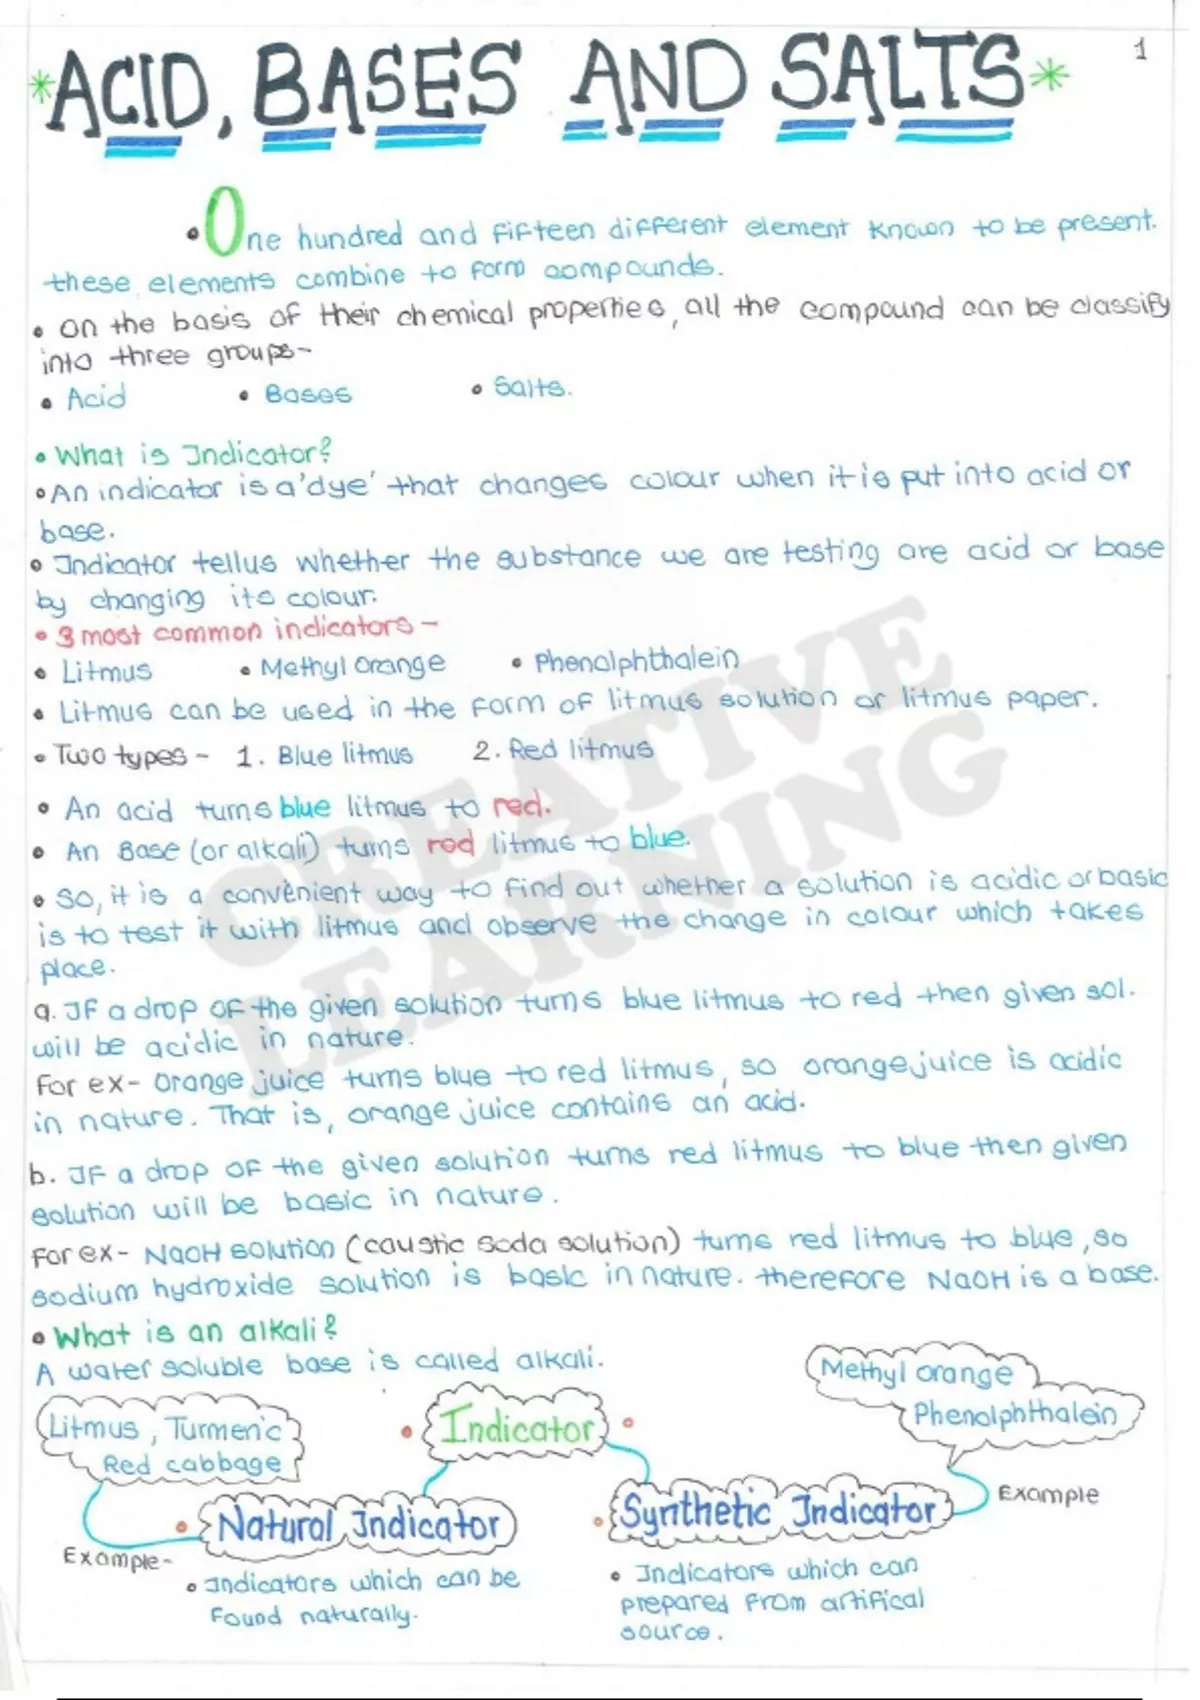 1
*ACID, BASES AND SALTS*
• One hundred and fifteen different element known to be present.
these elements combine to form compounds.
• on the basis of their chemical properties, all the compound can be classify
into three groups-
• Acid • Bases • Salts.
• What is Indicator?
• An indicator is a 'dye' that changes colour when it is put into acid or
base.
• Indicator tell us whether the substance we are testing are acid or base
by changing its colour.
• 3 most common indicators -
• Litmus • Methyl orange • Phenolphthalein
• Litmus can be used in the form of litmus solution or litmus paper.
• Two types - 1. Blue litmus 2. Red litmus
• An acid turns blue litmus to red.
• An Base (or alkali) turns red litmus to blue.
• So, it is a convenient way to find out whether a solution is acidic or basic
is to test it with litmus and observe the change in colour which takes
place.
a. If a drop of the given solution turns blue litmus to red then given sol.
will be acidic in nature.
for ex- orange juice turns blue to red litmus, so orange juice is acidic
in nature. That is, orange juice contains an acid.
b. If a drop of the given solution turns red litmus to blue then given
solution will be basic in nature.
for ex- NaOH solution (caustic soda solution) turns red litmus to blue, so
sodium hydroxide solution is basic in nature. therefore NaOH is a base.
• What is an alkali?
A water soluble base is called alkali.
Methyl orange
Phenolphthalein
Litmus, Turmeric
Red cabbage
• Indicator •
Example
• Natural Indicator
• Synthetic Indicator
Example-
• Indicators which can be
found naturally.
• Indicators which can
prepared from artifical
source.
CREATIVE
LEARNING